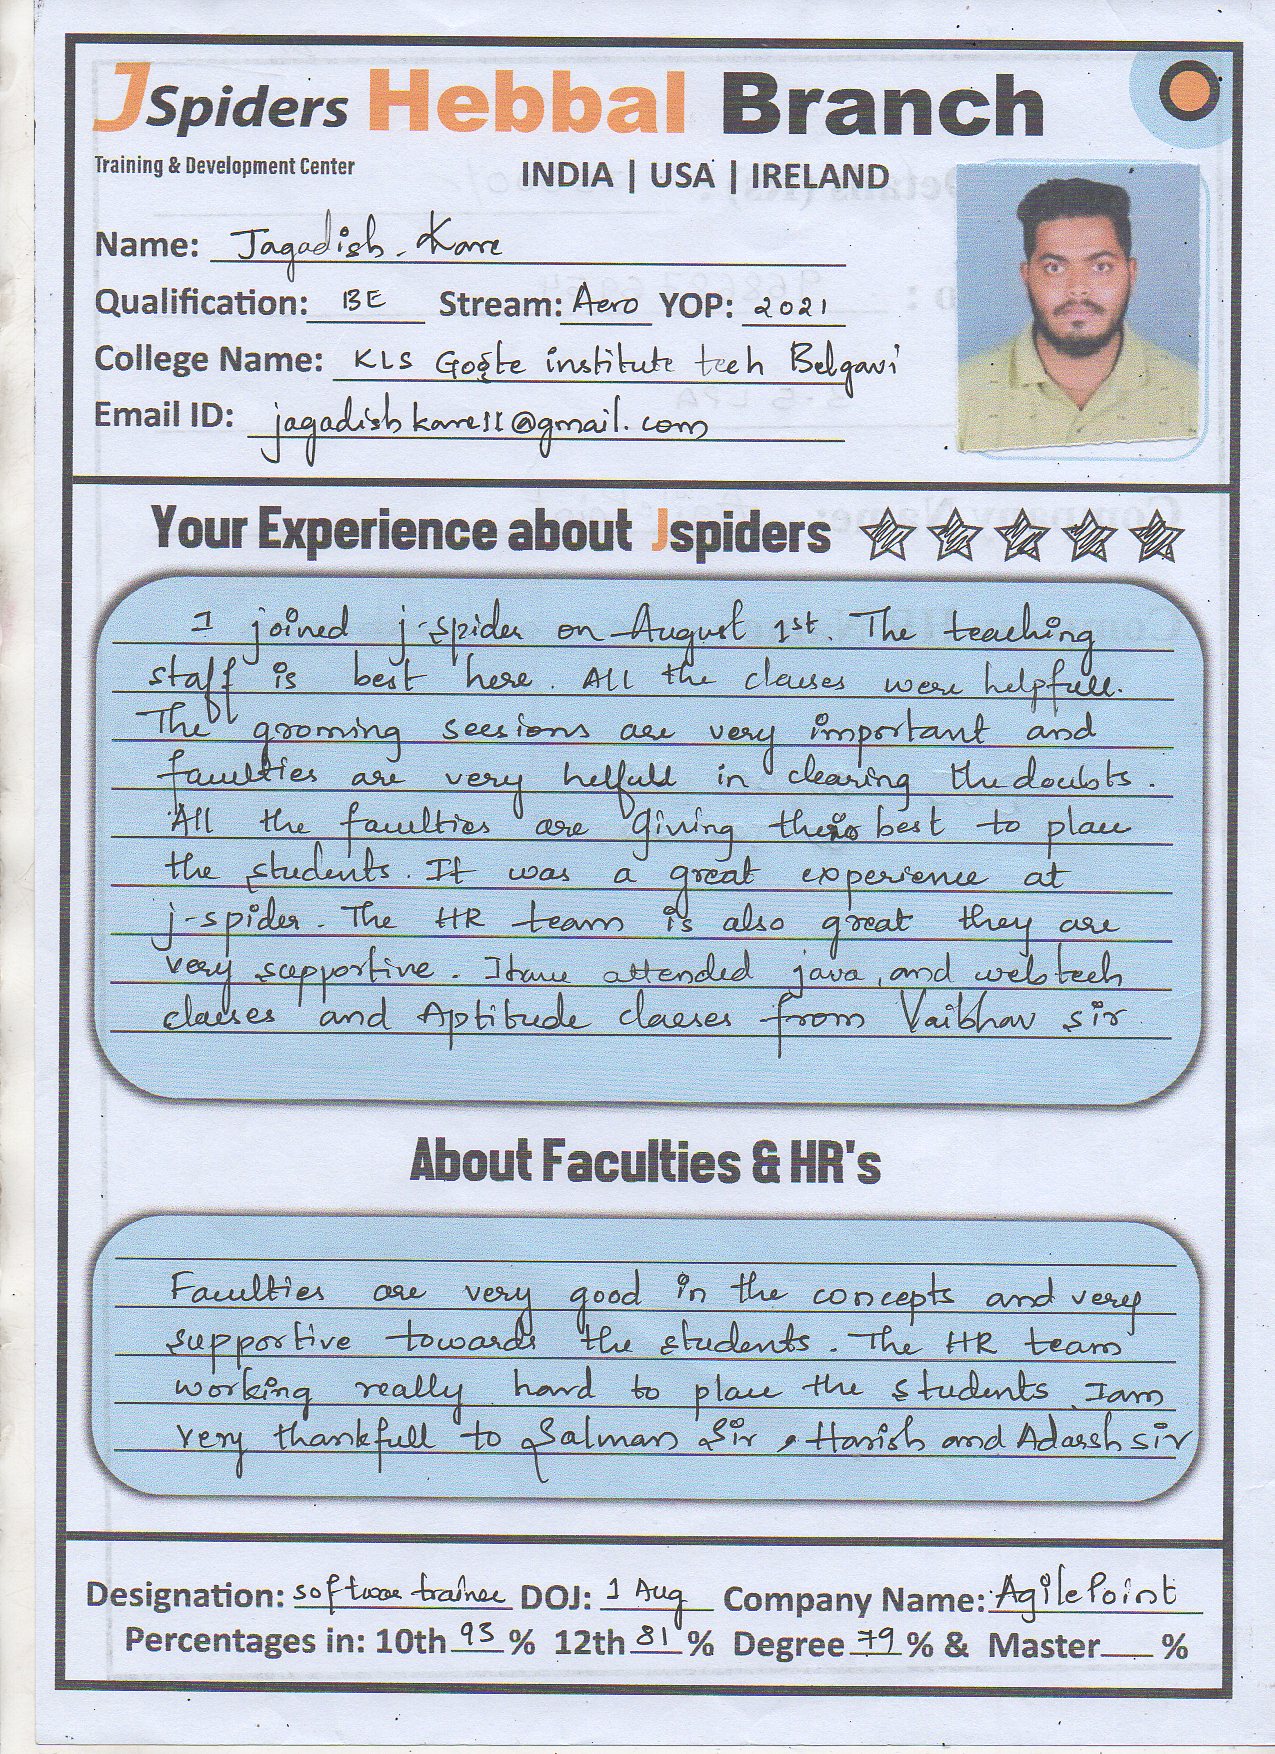 JSpiders Hebbal Branch
Training & Development Center
INDIA | USA | IRELAND
Name: Jagadish. Kare
Qualification: BE Stream: Aero YOP: 2021
College Name: KLS Gogte institute tech Belgavi
Email ID: jagadishkare11@gmail.com
Your Experience about Jspiders
I joined j-spider on August 1st. The teaching
staff is best here. All the classes were helpfull.
The groming sessions are very important and
faculties are very helfull in clearing the doubts.
All the faculties are giving their best to place
the students. It was a great experience at
j-spider. The HR team is also great they are
very supportive. I have attended java, and web tech
classes and Aptitude classes from Vaibhav sir
About Faculties & HR's
Faculties are very good in the concepts and very
supportive towards the students. The HR team
working really hard to place the students I am
very thankfull to Salman Sir, Harish and Adarsh sir
Designation: software trainee DOJ: 1 Aug Company Name: AgilePoint
Percentages in: 10th 93 % 12th 81 % Degree 79 % & Master %